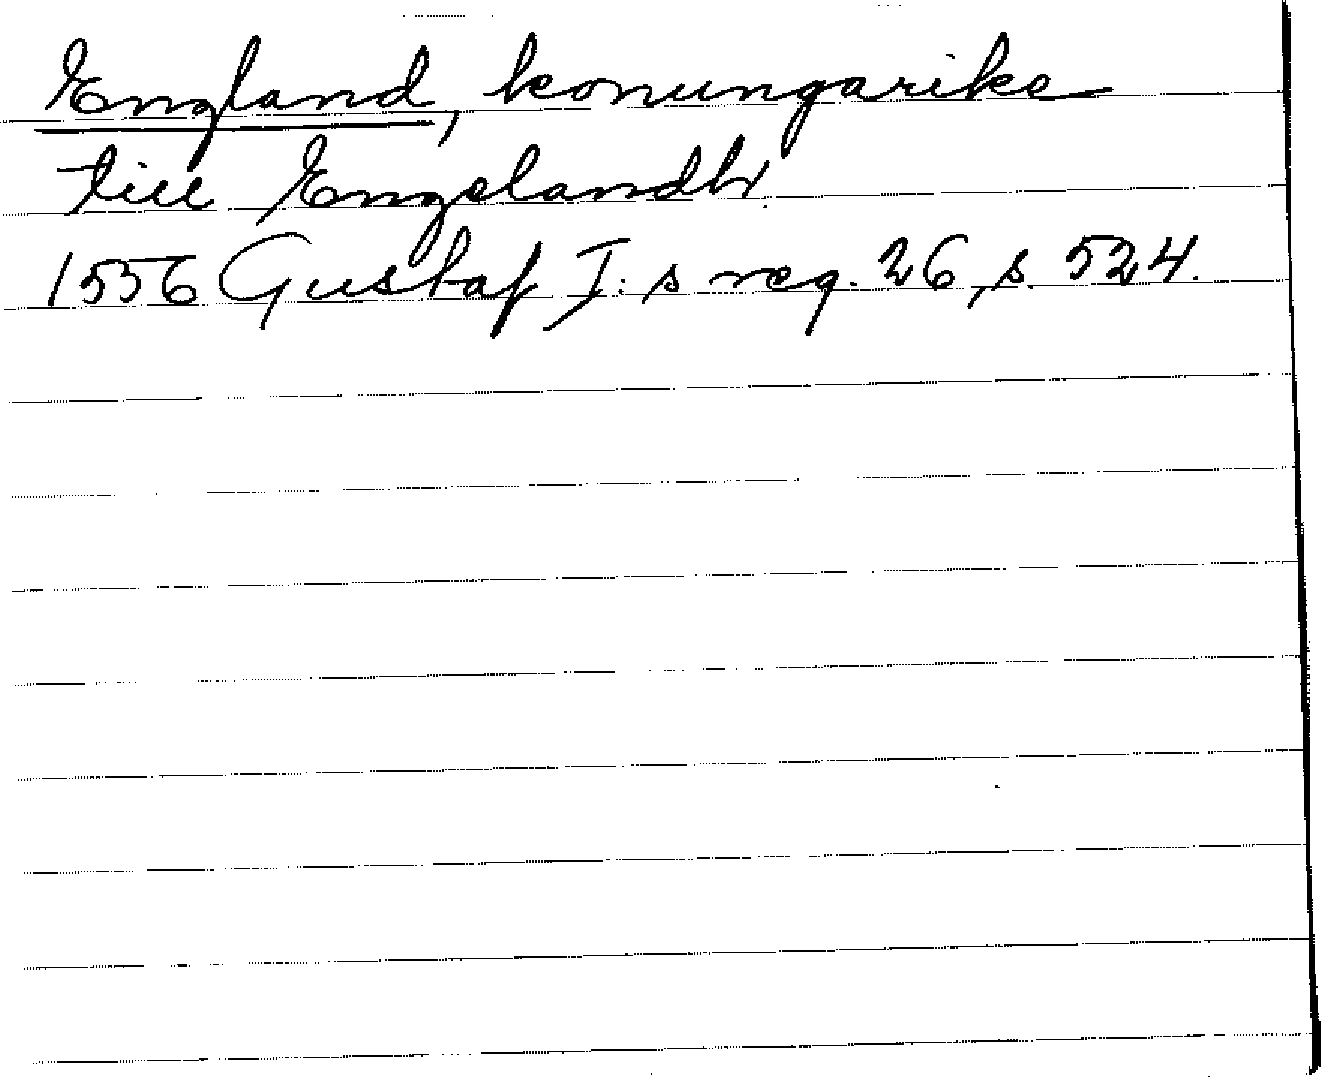 England, konungarike
till Engelandh
1556 Gustaf I:s reg. 26, s. 524.